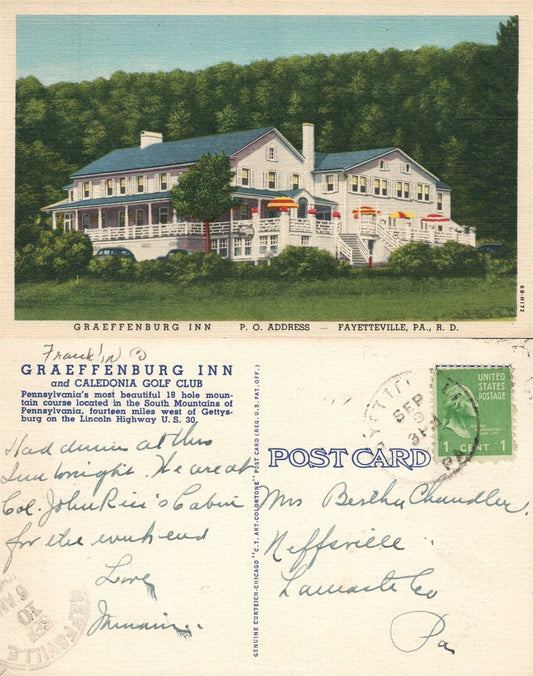 GRAEFFENBURG INN P. O. ADDRESS — FAYETTEVILLE, PA., R. D.
6B-H172
Franklin
GRAEFFENBURG INN
and CALEDONIA GOLF CLUB
Pennsylvania's most beautiful 18 hole moun-
tain course located in the South Mountains of
Pennsylvania, fourteen miles west of Gettys-
burg on the Lincoln Highway U. S. 30.
Had dinner at this
Inn tonight. We are at
Col. John Rice's Cabin
for the week end
Love
GENUINE CURTEICH-CHICAGO "C.T. ART-COLORTONE" POST CARD (REG. U.S. PAT. OFF.)
POST CARD
SEP
PA
UNITED
STATES
POSTAGE
1 CENT 1
Mrs Bertha Chandler
Neffsville
Lancaster Co
Pa
NEFFSVILLE
SEP
10
6 AM